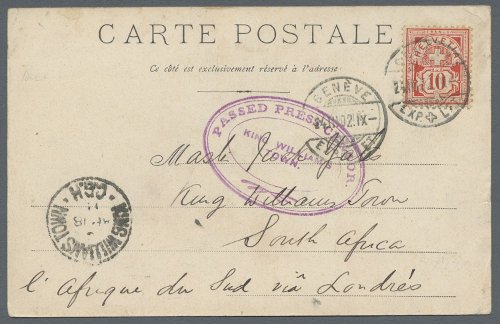 CARTE POSTALE
Ce côté est exclusivement réservé à l'adresse
HELVETIA
10
EXP. L
GENÈVE
02.IX-
PASSED PRESS CENSOR.
KING WILLIAMS
TOWN.
Mast
King Williams Town
South Africa
l'Afrique du Sud viâ Londres
KING WILLIAM'S TOWN
C.G.H.